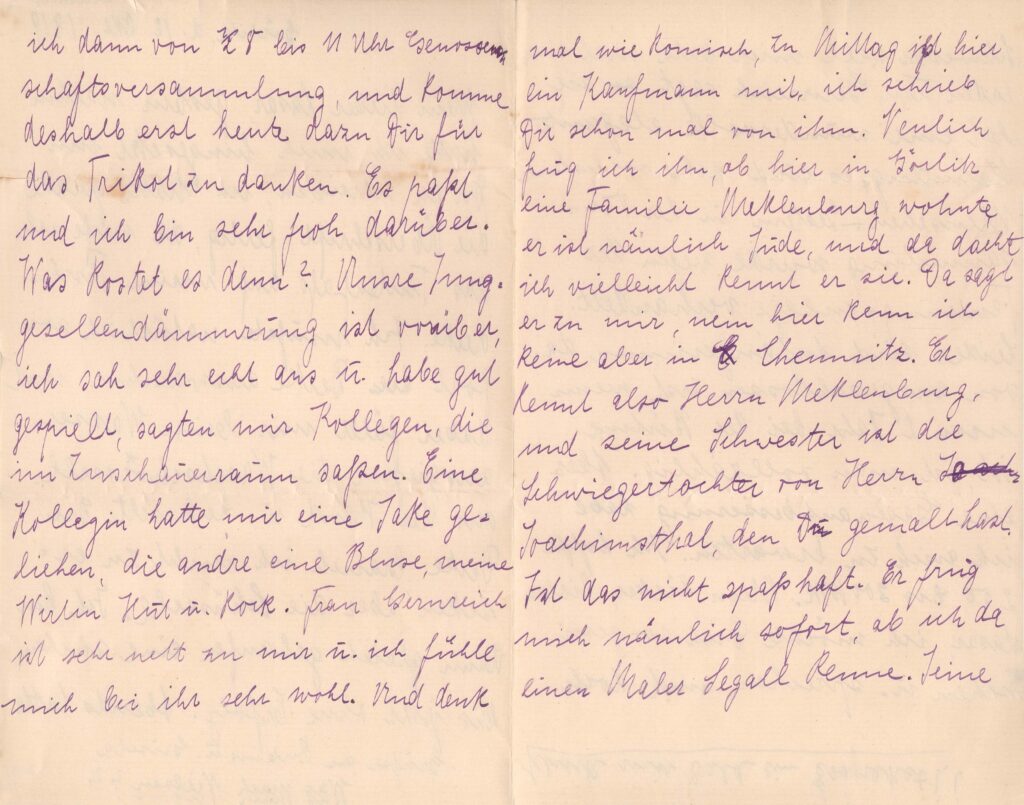 ich dann von 8 bis 11 Uhr Genossen-
schaftsversammlung, und komme
deshalb erst heute dazu Dir für
das Trikot zu danken. Es paßt
und ich bin sehr froh darüber.
Was kostet es denn? Unsre Jung-
gesellendämmrung ist vorüber,
ich sah sehr echt aus u. habe gut
gespielt, sagten mir Kollegen, die
im Zuschauerraum saßen. Eine
Kollegin hatte mir eine Jake ge-
liehen, die andre eine Bluse, meine
Wirtin Hut u. Rock. Frau Gernreich
ist sehr nett zu mir u. ich fühle
mich bei ihr sehr wohl. Und denk
mal wie komisch, zu Mittag ißt hier
ein Kaufmann mit, ich schrieb
Dir schon mal von ihm. Neulich
frug ich ihn, ob hier in Görlitz
eine Familie Meklenburg wohnte,
er ist nämlich Jude, und da dacht
ich vielleicht kennt er sie. Da sagt
er zu mir, nein hier kenn ich
keine aber in Chemnitz. Er
kennt also Herrn Meklenburg,
und seine Schwester ist die
Schwiegertochter von Herrn
Joachimsthal, den Du gemalt hast.
Ist das nicht spaßhaft. Er frug
mich nämlich sofort, ob ich da
einen Maler Segall kenne. Seine